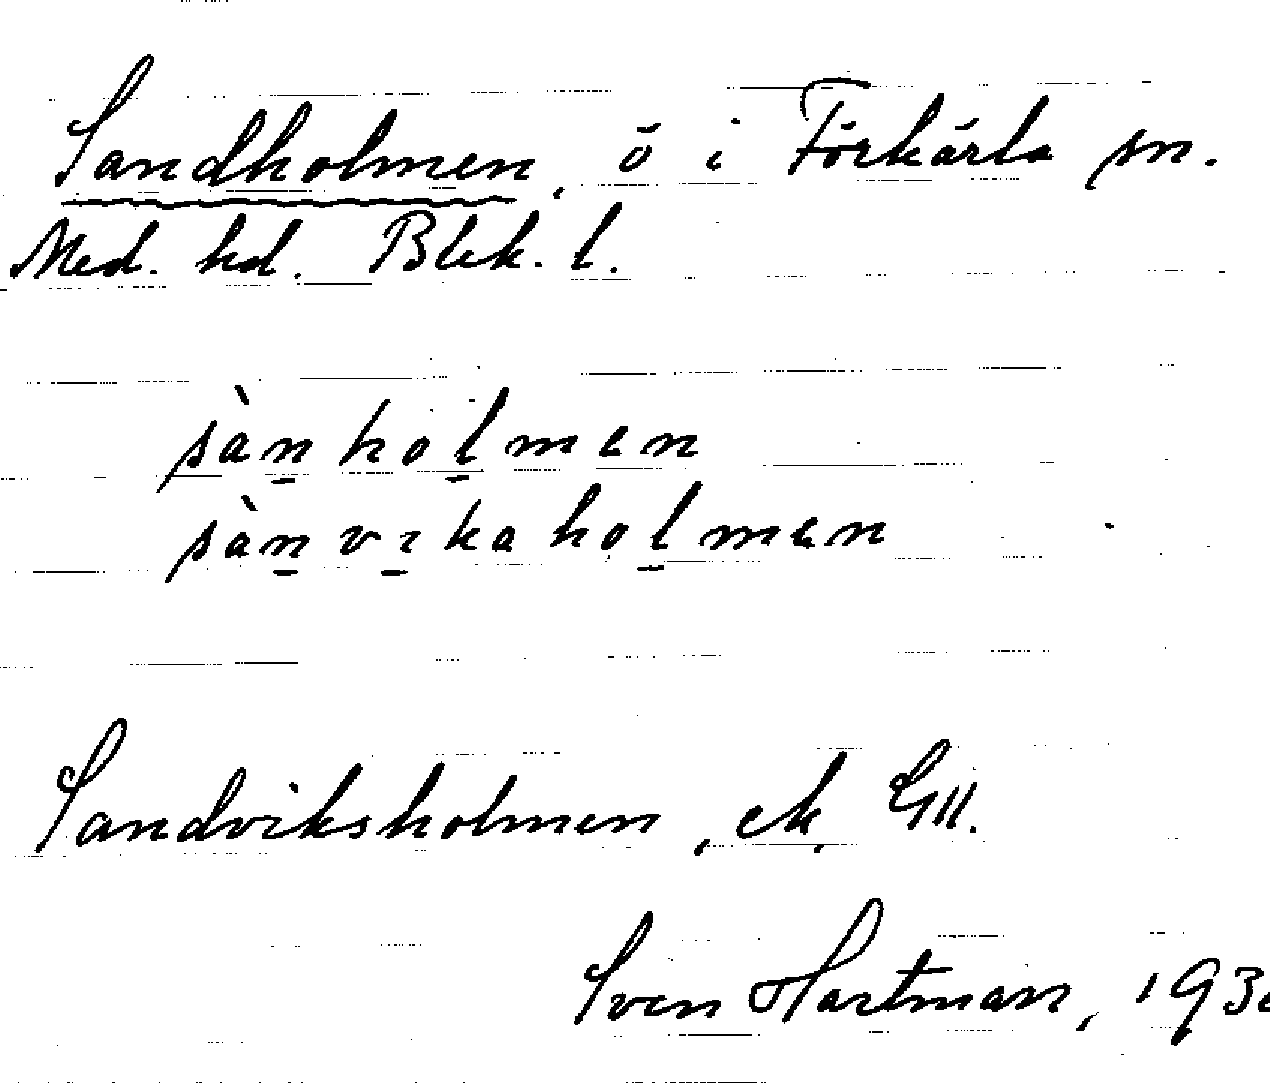 Sandholmen, ö i Förkärla sn.
Med. hd. Blek. l.
sànholmen
sànvikaholmen
Sandviksholmen, ek, GII.
Sven Hartman, 193